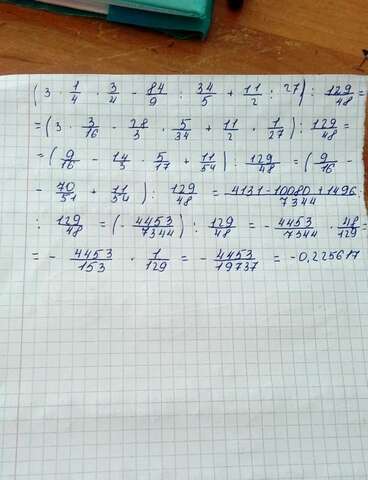 (3 · 1/4 · 3/4 - 84/9 : 34/5 + 11/2 : 27) : 129/48 =
= (3 · 3/16 - 28/3 · 5/34 + 11/2 · 1/27) : 129/48 =
= (9/16 - 14/3 · 5/17 + 11/54) : 129/48 = (9/16 -
- 70/51 + 11/54) : 129/48 = 4131-10080+1496/7344 :
: 129/48 = (- 4453/7344) : 129/48 = - 4453/7344 · 48/129 =
= - 4453/153 · 1/129 = - 4453/19737 = -0,225617